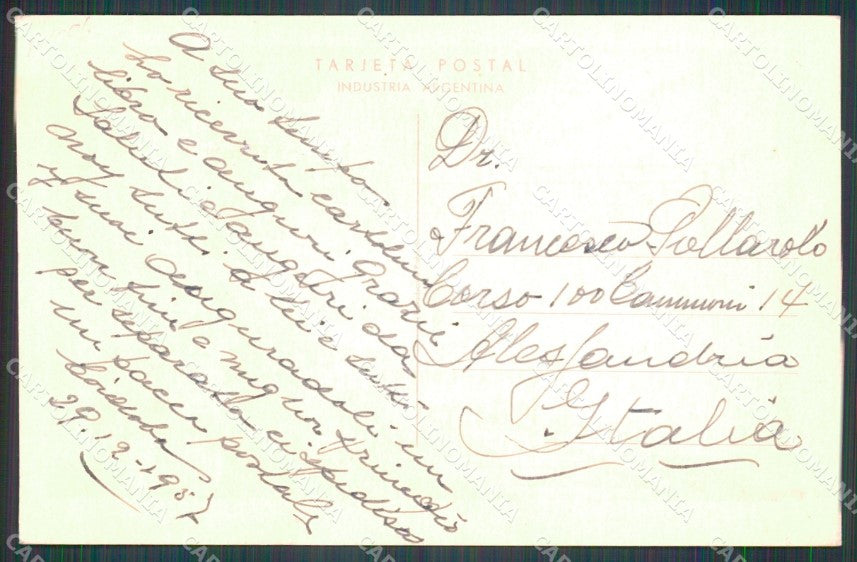 TARJETA POSTAL
INDUSTRIA ARGENTINA
A suo tempo
ho ricevuto cartolina
libro e auguri. Grazie
Saluti e auguri da
noy tutti. a lei e tutti
y suoi augurandoli un
buon fine e miglior principio
per separato ci spedisco
un pacco postale
Cordoba
29.12-1957
Dr.
Francesco Pollarolo
Corso 100 Cannoni 14
Alessandria
Italia
CARTOLINOMANIA